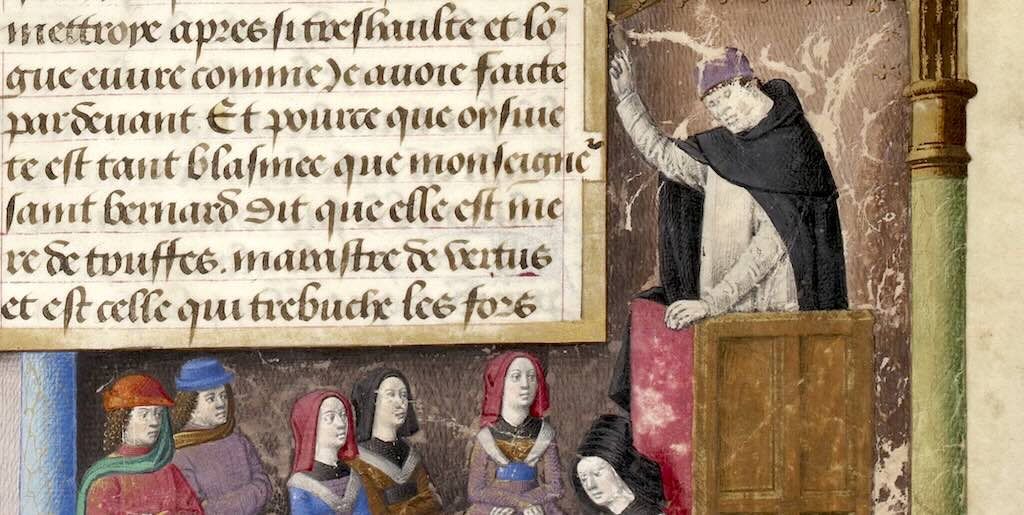 mettroye apres si treshaulte et lō
gue euure comme Je auoie faicte
par deuant Et pource que oysiue
te est tant blasmee que monseignēr
saint bernard dit que elle est me
re de touffes. marastre de vertus
et est celle qui trebuche les fors